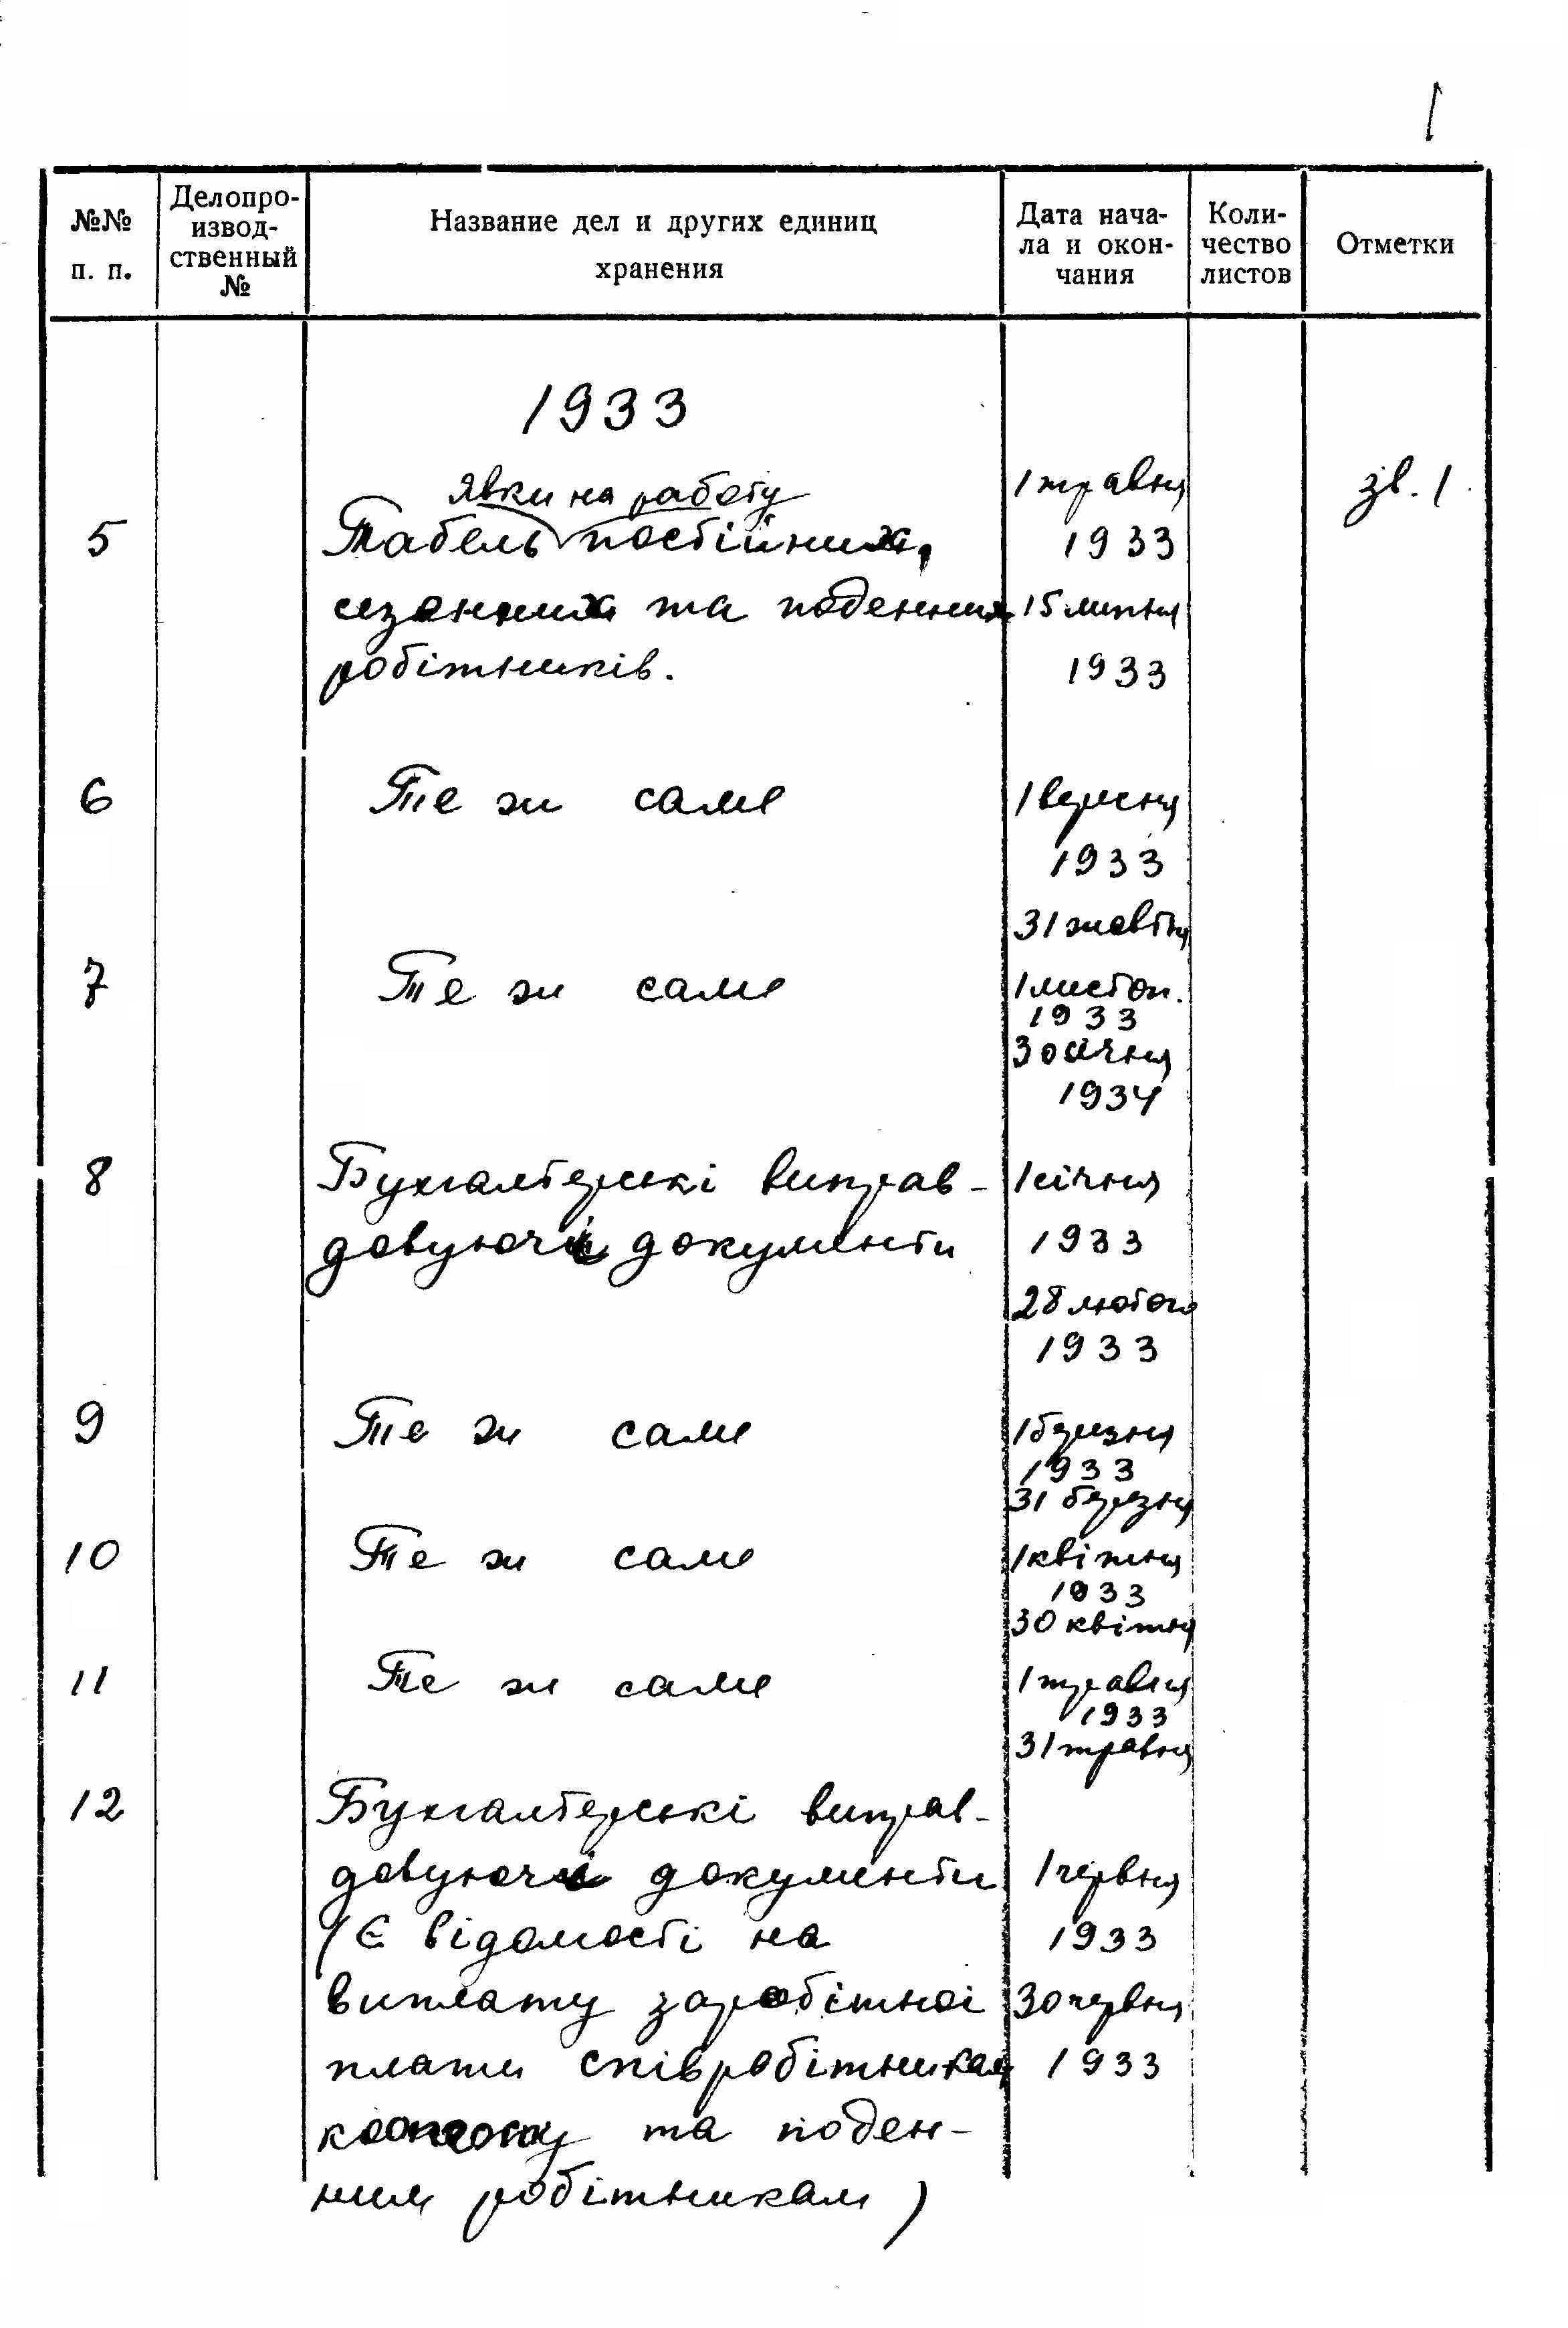 1
№№ п. п.
Делопро-
извод-
ственный
№
Название дел и других единиц
хранения
Дата нача-
ла и окон-
чания
Коли-
чество
листов
Отметки
1933
явки на работу
5 Табель постійних, 1 травня 1933 зв. 1
сезонних та поденних 15 липня
робітників. 1933
6 Те ж саме 1 вересня
1933
31 жовтня
7 Те ж саме 1 листоп.
1933
30 січня
1934
8 Бухгалтерські виправ- 1 січня
довуючі документи 1933
28 лютого
1933
9 Те ж саме 1 березня
1933
31 березня
10 Те ж саме 1 квітня
1933
30 квітня
11 Те ж саме 1 травня
1933
31 травня
12 Бухгалтерські виправ-
довуючі документи 1 червня
(Є відомості на 1933
виплату заробітної 30 червня
плати співробітникам 1933
та поден-
ним робітникам)